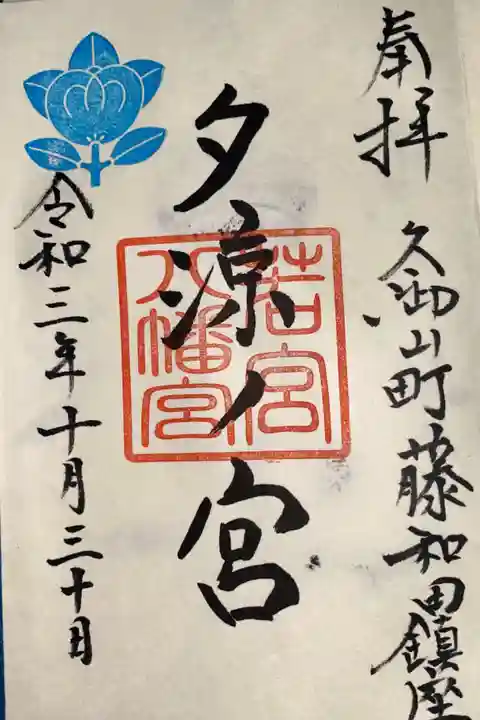 奉拝
久御山町藤和田鎮座
夕涼ノ宮
若宮
八幡宮
令和三年十月三十日